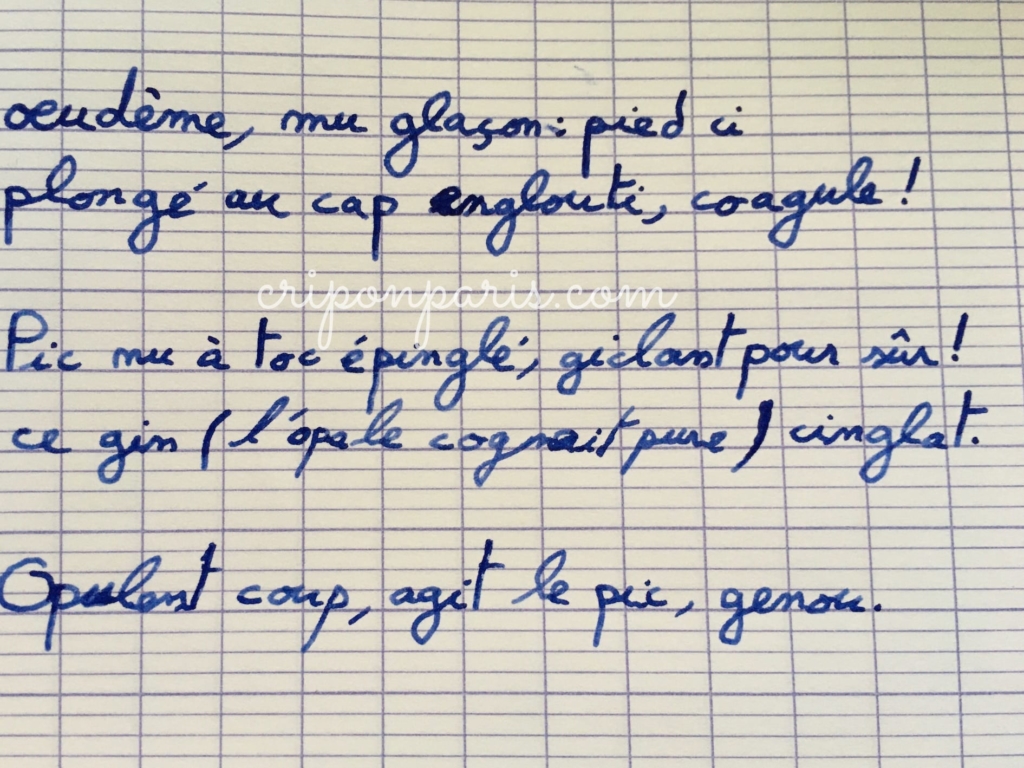 oeudème, mu glaçon: pied ci
plongé au cap englouti, coagule!
criponparis.com
Pic mu à toc épinglé, giclant pour sûr!
ce gin (l'opale cognait pure) cinglat.
Opulent coup, agit le pic, genou.